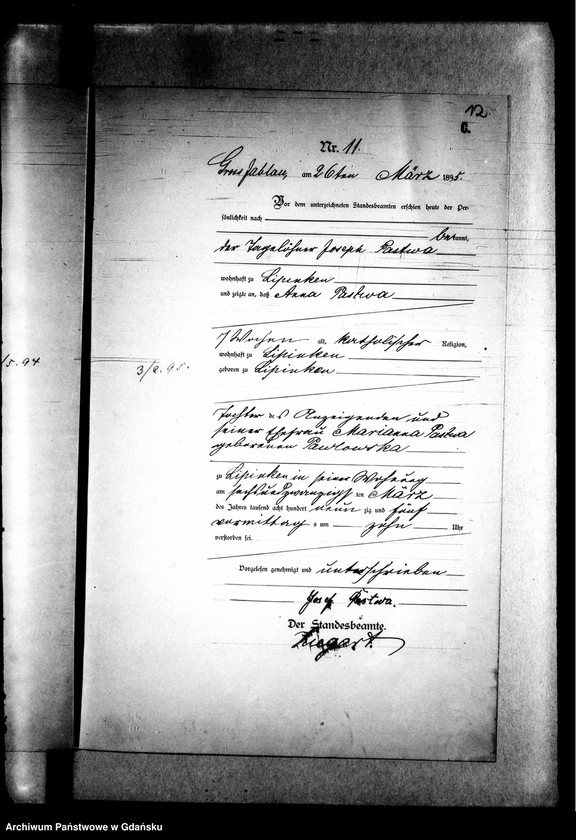 12
C.
Nr. 11.
Gross Jablau, am 26ten März 1895.
Vor dem unterzeichneten Standesbeamten erschien heute der Per-
sönlichkeit nach
bekannt,
der Tagelöhner Joseph Pastwa
wohnhaft zu Lipinken
und zeigte an, daß Anna Pastwa
7 Wochen alt, katholischer Religion,
wohnhaft zu Lipinken
geboren zu Lipinken
/5. 94
3/2. 95.
Tochter des Anzeigenden und
seiner Ehefrau Marianna Pastwa
geborenen Pawlowska
zu Lipinken in seiner Wohnung
am sechsundzwanzigsten März
des Jahres tausend acht hundert neunzig und fünf
vormittags um zehn Uhr
verstorben sei.
Vorgelesen genehmigt und unterschrieben
Josef Pastwa.
Der Standesbeamte.
Archiwum Państwowe w Gdańsku